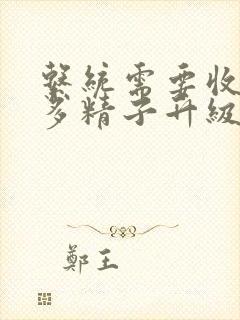 系統需要收
多精子升級
鄭王